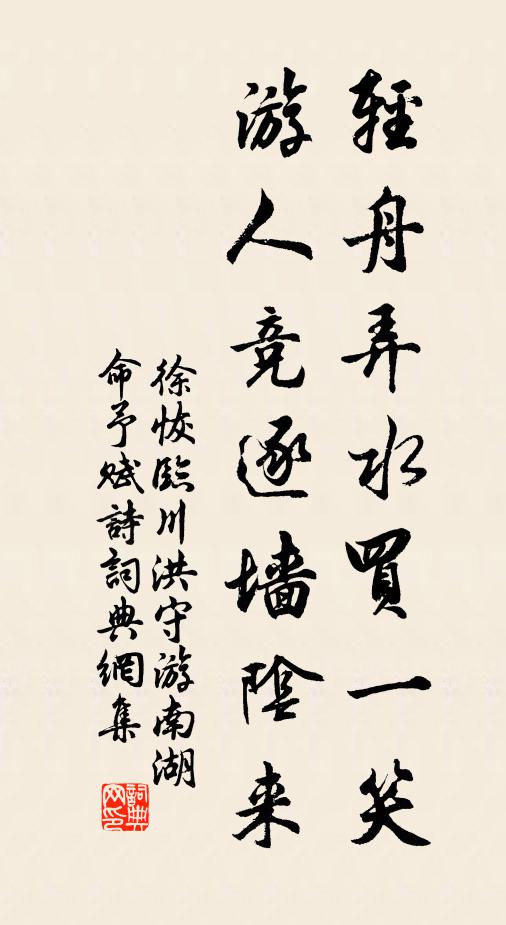 輕舟弄水買一笑
游人竞逐墙陰来
徐恢臨川洪守游南湖
命予赋詩詞典網集
詞典
网印